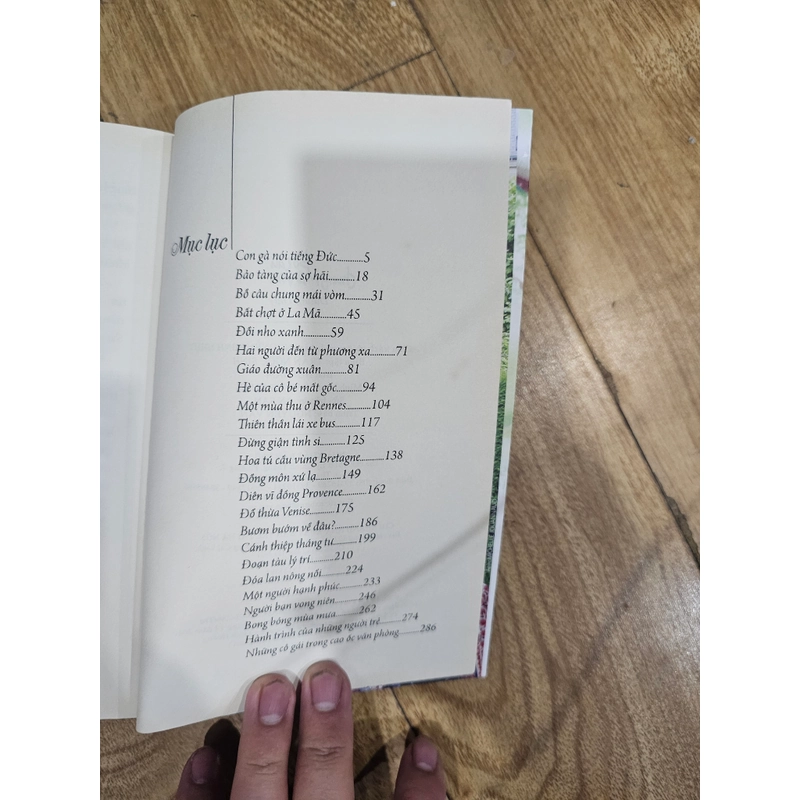 Mục lục
Con gà nói tiếng Đức.............5
Bảo tàng của sợ hãi.............18
Bồ câu chung mái vòm.............31
Bất chợt ở La Mã.............45
Đồi nho xanh.............59
Hai người đến từ phương xa.............71
Giáo đường xuân.............81
Hè của cô bé mắt gốc.............94
Một mùa thu ở Rennes.............104
Thiên thần lái xe bus.............117
Đừng giận tình si.............125
Hoa tú cầu vùng Bretagne.............138
Đồng môn xứ lạ.............149
Diên vĩ đồng Provence.............162
Đồ thừa Venise.............175
Bươm bướm về đâu?.............186
Cánh thiệp tháng tư.............199
Đoạn tàu lý trí.............210
Đóa lan nông nổi.............224
Một người hạnh phúc.............233
Người bạn vong niên.............246
Bong bóng mùa mưa.............262
Hành trình của những người trẻ.............274
Những cô gái trong cao ốc văn phòng.............286